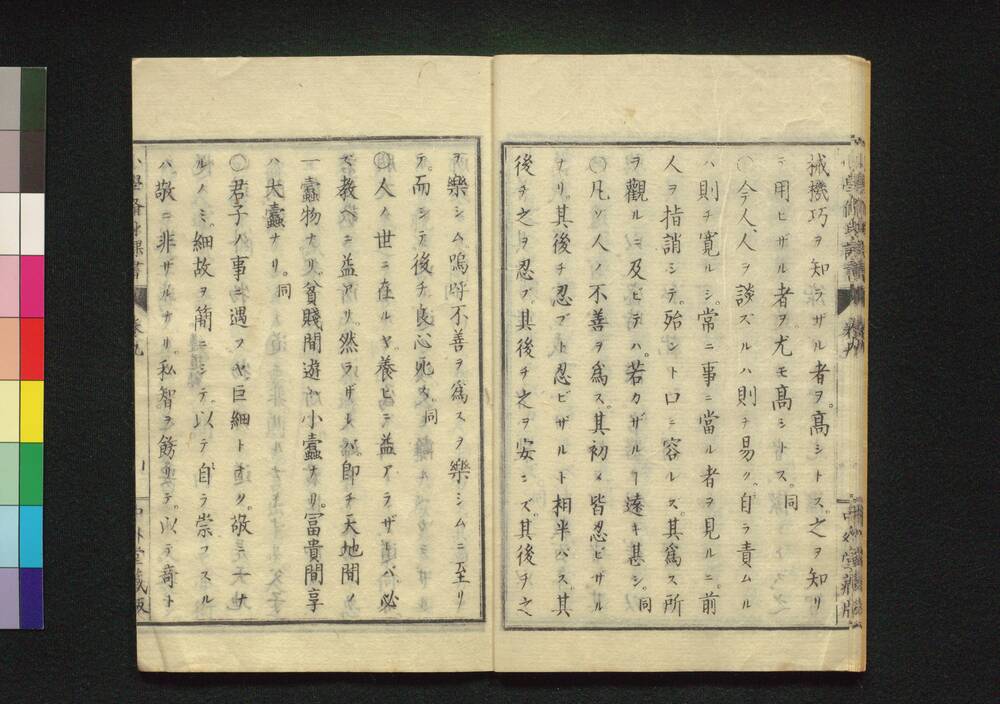 械機巧ヲ知ラザル者ヲ。高シトス。之ヲ知リ
ニ用ヒザル者ヲ。尤モ高シトス。同
〇今人、人ヲ談ズルハ則チ易ク。自ラ責ムル
ハ則チ寛ルシ。常ニ事ニ當ル者ヲ見ルニ。前
人ヲ指誚シテ。殆シト口ニ容レズ。其爲ス所
ヲ觀ルニ及ビテハ。若カザルヿ遠キ甚シ。同
〇凡ソ人ノ不善ヲ爲ス。其初メ皆忍ビザル
ナリ。其後チ忍ブト忍ビザルト相半バス。其
後チ之ヲ忍ブ。其後チ之ヲ安ンズ。其後チ之
ヲ樂シム。嗚呼不善ヲ爲スヲ樂シムニ至リ
テ。而シテ後チ良心死ス。同
〇人ノ世ニ在ルヤ。養ヒニ益アラザレバ。必
ズ教ヘニ益アリ。然ラザレバ即チ天地間ノ
一蠹物ナリ。貧賤間遊ハ小蠹ナリ。冨貴間享
ハ大蠹ナリ。同
〇君子ハ事ニ遇フヤ巨細トナク。敬ニ大ナ
ルノミ。細故ヲ簡ニシテ。以テ自ラ崇フスル
ハ。敬ニ非ザルナリ。私智ヲ餝リテ。以テ奇ト
卷九
中外堂藏版